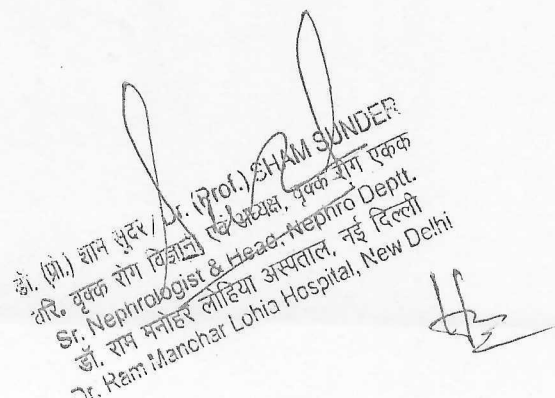 डॉ. (प्रो.) शाम सुंदर / Dr. (Prof.) SHAM SUNDER
वरि. वृक्क रोग विज्ञानी एवं अध्यक्ष, वृक्क रोग एकक
Sr. Nephrologist & Head, Nephro Deptt.
डॉ. राम मनोहर लोहिया अस्पताल, नई दिल्ली
Dr. Ram Manohar Lohia Hospital, New Delhi